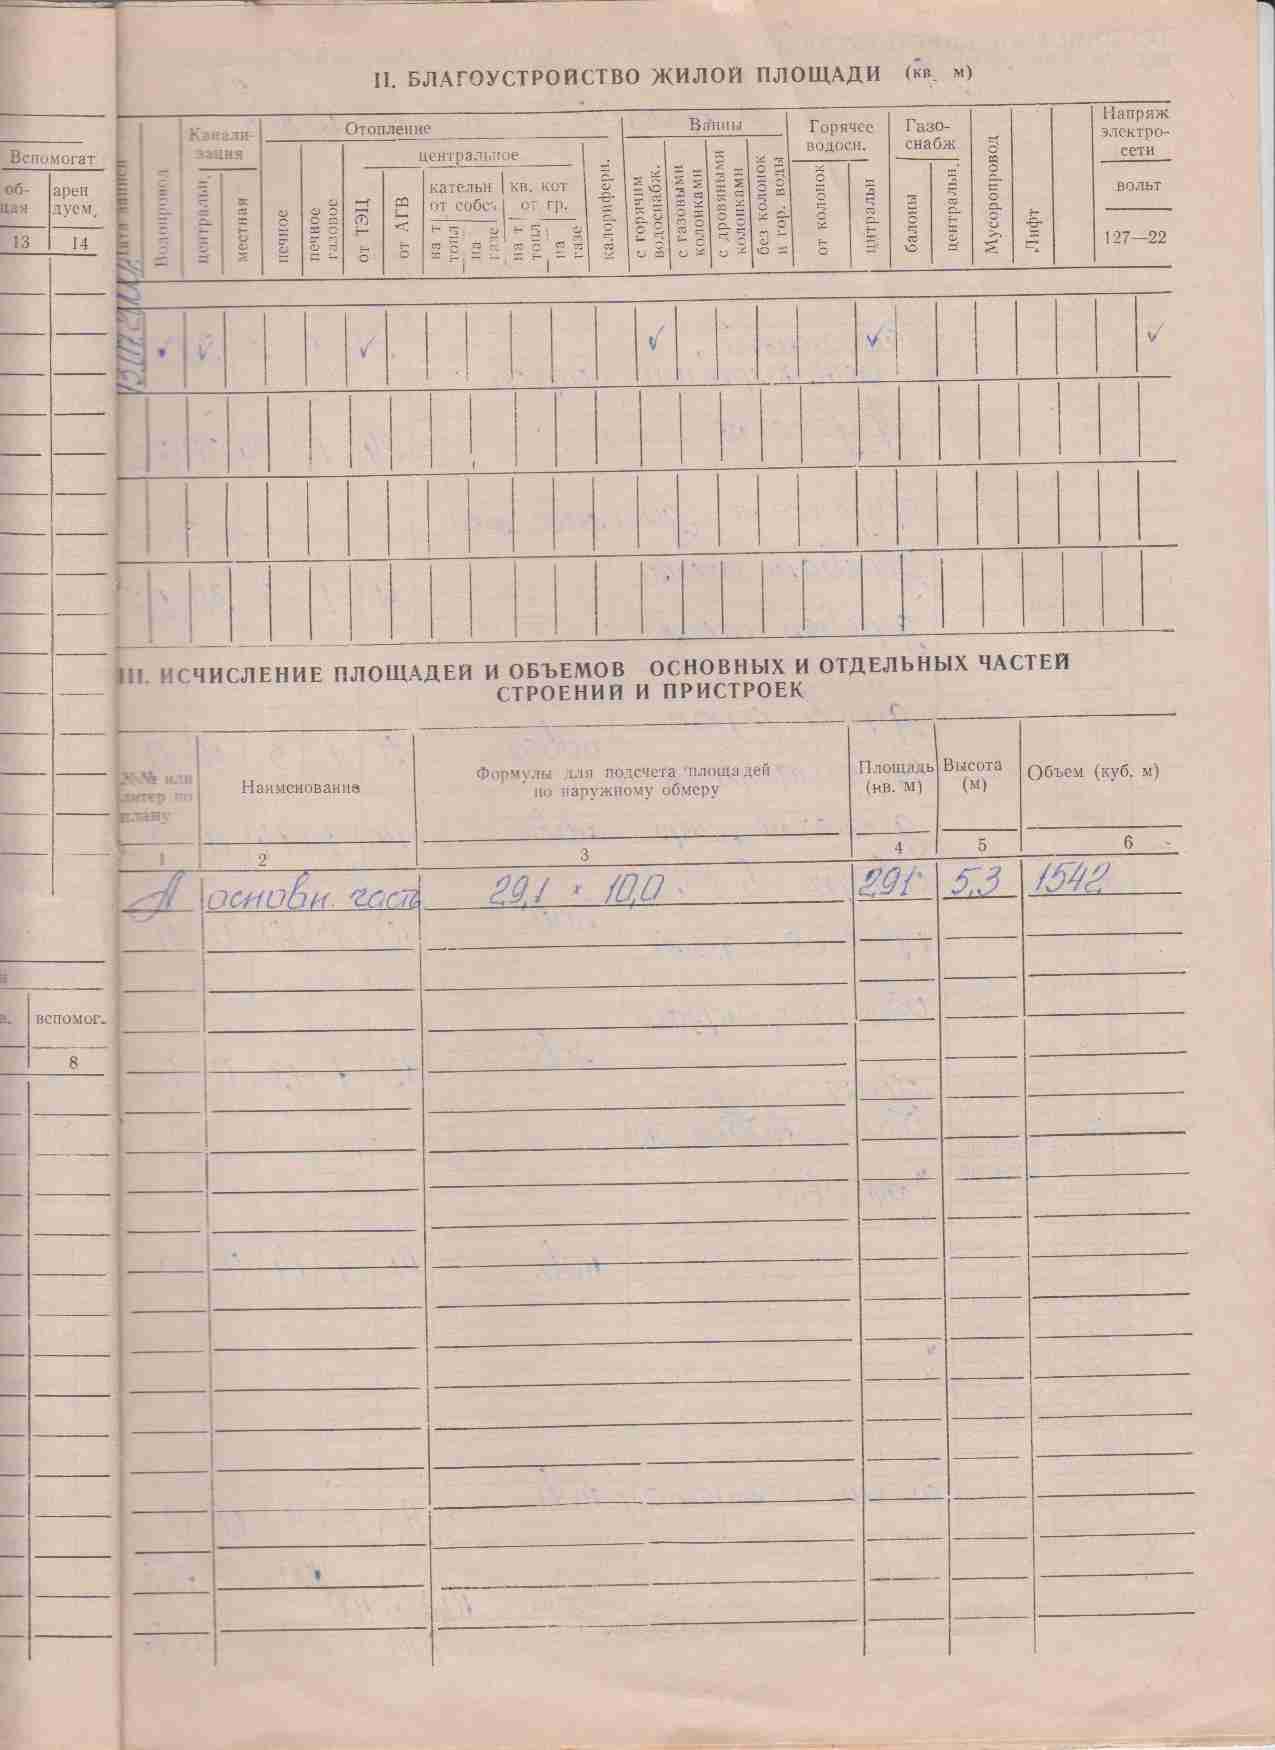 II. БЛАГОУСТРОЙСТВО ЖИЛОЙ ПЛОЩАДИ (кв. м)
Вспомогат
об-
щая
арен
дуем.
13 14
Дата записи
Водопровод
Канали-
зация
центральн.
местная
Отопление
печное
печное
газовое
центральное
от ТЭЦ
от АГВ
кательн
от собс.
на т.
топл
на
газе
кв. кот
от гр.
на т.
топл
на
газе
калориферн.
Ванны
с горячим
водоснабж.
с газовыми
колонками
с дровяными
колонками
без колонок
и гор. воды
Горячее
водосн.
от колонок
цнтральн
Газо-
снабж
балоны
центральн.
Мусоропровод
Лифт
Напряж
электро-
сети
вольт
127—22
✓ ✓ ✓ ✓ ✓ ✓
III. ИСЧИСЛЕНИЕ ПЛОЩАДЕЙ И ОБЪЕМОВ ОСНОВНЫХ И ОТДЕЛЬНЫХ ЧАСТЕЙ
СТРОЕНИЙ И ПРИСТРОЕК
№№ или
литер по
плану
Наименование
Формулы для подсчета площадей
по наружному обмеру
Площадь
(кв. м)
Высота
(м)
Объем (куб. м)
1 2 3 4 5 6
А основн. часть 29,1 × 10,0 291 5,3 1542
в. вспомог.
8